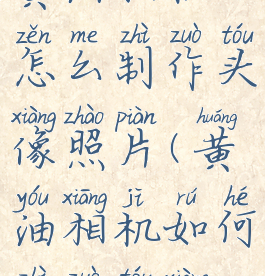 zěn me zhì zuò tóu
怎么制作头
xiàng zhào piàn huáng
像照片(黄
yóu xiāng jī rú hé
油相机如何